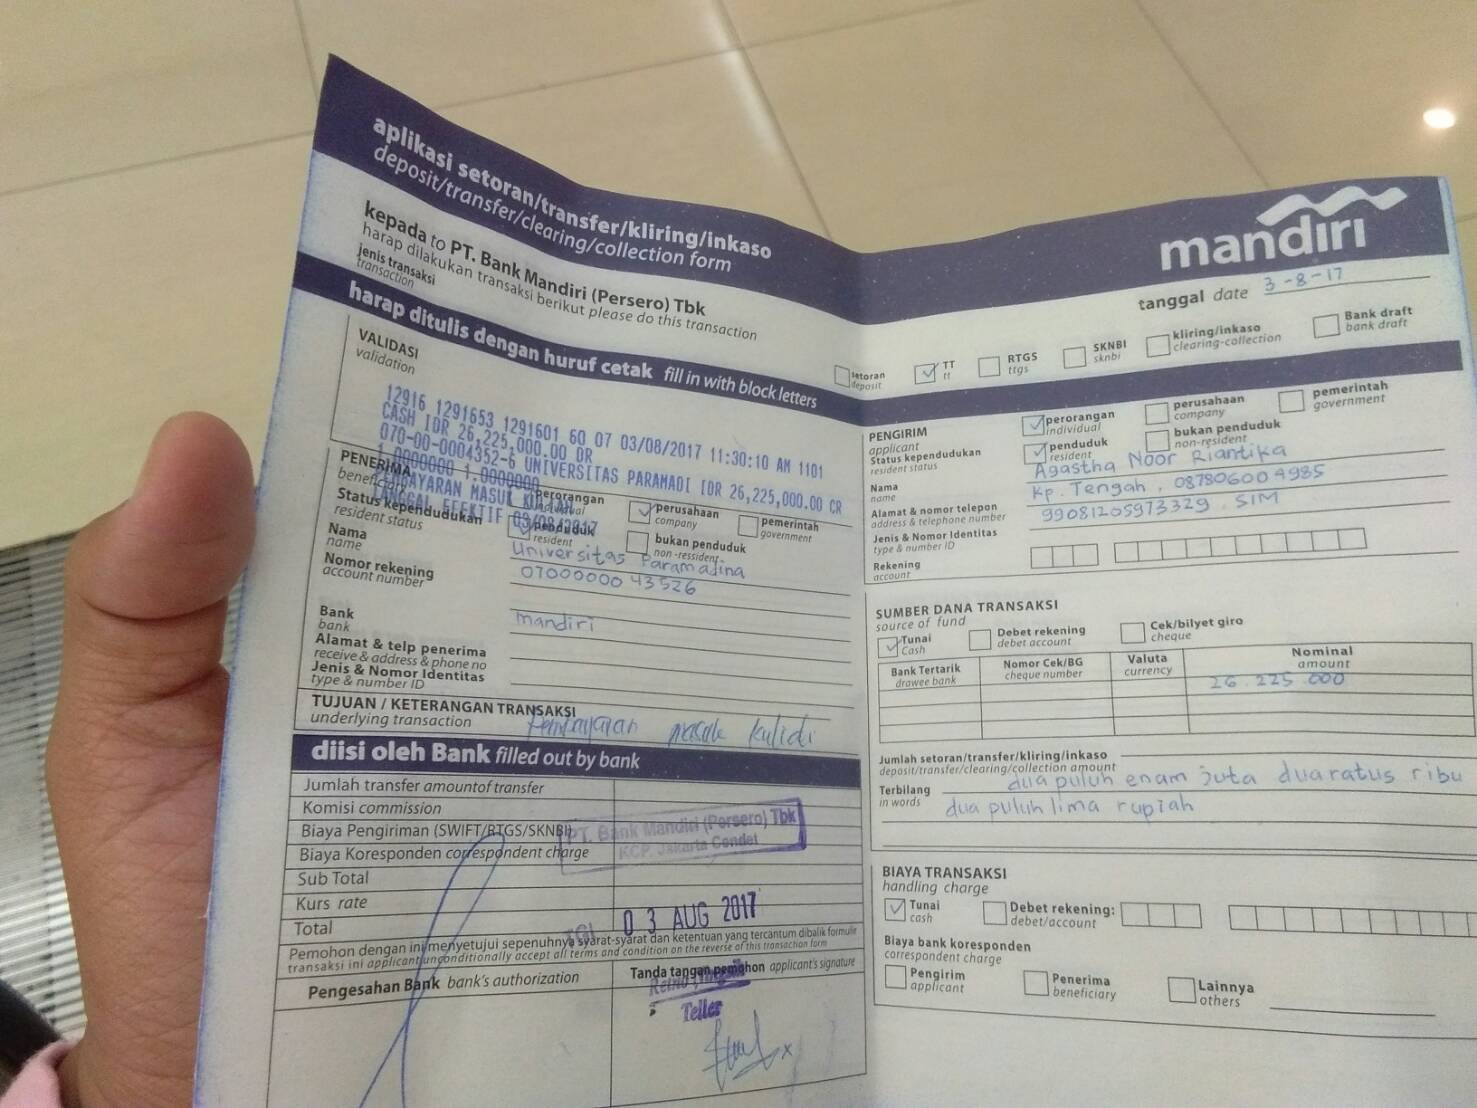 aplikasi setoran/transfer/kliring/inkaso
deposit/transfer/clearing/collection form
mandiri
kepada to PT. Bank Mandiri (Persero) Tbk
harap dilakukan transaksi berikut please do this transaction
jenis transaksi
transaction
tanggal date 3-8-17
setoran
deposit
TT
tt
RTGS
rtgs
SKNBI
sknbi
kliring/inkaso
clearing-collection
Bank draft
bank draft
harap ditulis dengan huruf cetak fill in with block letters
VALIDASI
validation
12916 1291653 1291601 60 07 03/08/2017 11:30:10 AM 1101
CASH IDR 26,225,000.00 DR
070-00-0004352-6 UNIVERSITAS PARAMADI IDR 26,225,000.00 CR
1.0000000 1.0000000
PEMBAYARAN MASUK KULIAH
TANGGAL EFEKTIF 03/08/2017
PENERIMA
beneficiary
perorangan
individual
perusahaan
company
pemerintah
government
Status kependudukan
resident status
penduduk
resident
bukan penduduk
non-ressident
Nama
name
Universitas Paramadina
Nomor rekening
account number
0700000043526
Bank
bank
mandiri
Alamat & telp penerima
receive & address & phone no
Jenis & Nomor Identitas
type & number ID
TUJUAN / KETERANGAN TRANSAKSI
underlying transaction
Pembayaran masuk kulidi
diisi oleh Bank filled out by bank
Jumlah transfer amountof transfer
Komisi commission
Biaya Pengiriman (SWIFT/RTGS/SKNBI)
Biaya Koresponden correspondent charge
Sub Total
Kurs rate
Total
PT. Bank Mandiri (Persero) Tbk
KCP. Jakarta Condet
TGL 03 AUG 2017
Pemohon dengan ini menyetujui sepenuhnya syarat-syarat dan ketentuan yang tercantum dibalik formulir
transaksi ini applicant unconditionally accept all terms and condition on the reverse of this transaction form
Pengesahan Bank bank's authorization
Tanda tangan pemohon applicant's signature
Teller
PENGIRIM
applicant
perorangan
individual
perusahaan
company
pemerintah
government
Status kependudukan
resident status
penduduk
resident
bukan penduduk
non-resident
Nama
name
Agastha Noor Riantika
Alamat & nomor telepon
address & telephone number
Kp. Tengah . 087806004985
Jenis & Nomor Identitas
type & number ID
99081205973329 . SIM
Rekening
account
SUMBER DANA TRANSAKSI
source of fund
Tunai
Cash
Debet rekening
debet account
Cek/bilyet giro
cheque
Bank Tertarik
drawee bank
Nomor Cek/BG
cheque number
Valuta
currency
Nominal
amount
26.225.000
Jumlah setoran/transfer/kliring/inkaso
deposit/transfer/clearing/collection amount
Terbilang
in words
dua puluh enam juta duaratus ribu
dua puluh lima rupiah
BIAYA TRANSAKSI
handling charge
Tunai
cash
Debet rekening:
debet/account
Biaya bank koresponden
correspondent charge
Pengirim
applicant
Penerima
beneficiary
Lainnya
others